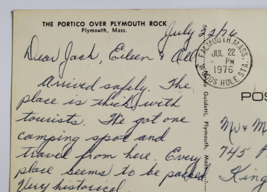 THE PORTICO OVER PLYMOUTH ROCK
Plymouth, Mass.
July 22/76
Dear Jack, Eileen & All
Arrived safely. The
place is thick with
tourists. I've got one
camping spot and
travel from here. Every
place seems to be packed
Very historical
FALMOUTH, MASS.
JUL 22
PM
1976
WOODS HOLE STA.
POS
Mr & M
745
King